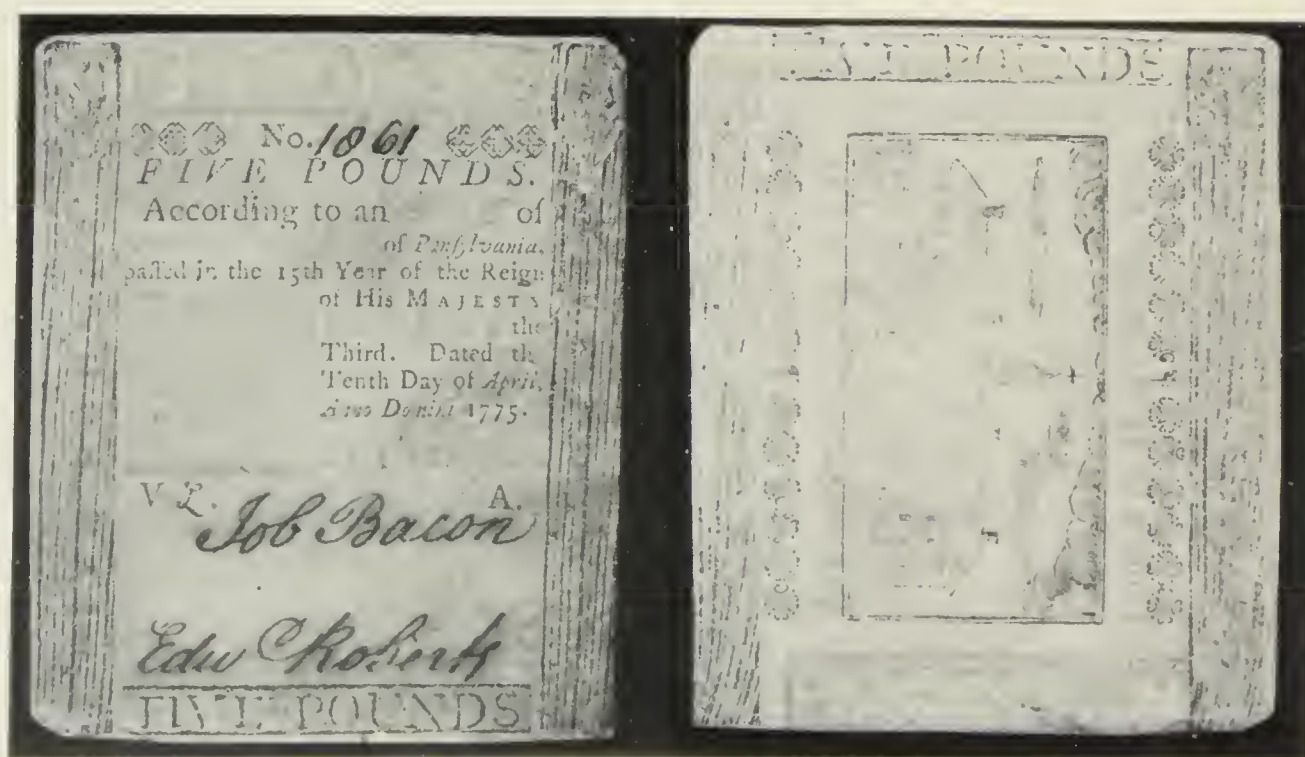 No. 1861
FIVE POUNDS.
According to an of
of Pensylvania,
paſſed in the 15th Year of the Reign
of His MAJESTY
the
Third. Dated the
Tenth Day of April,
Anno Domini 1775.
V L. A.
Job Bacon
Edw Roberts
FIVE POUNDS
FIVE POUNDS